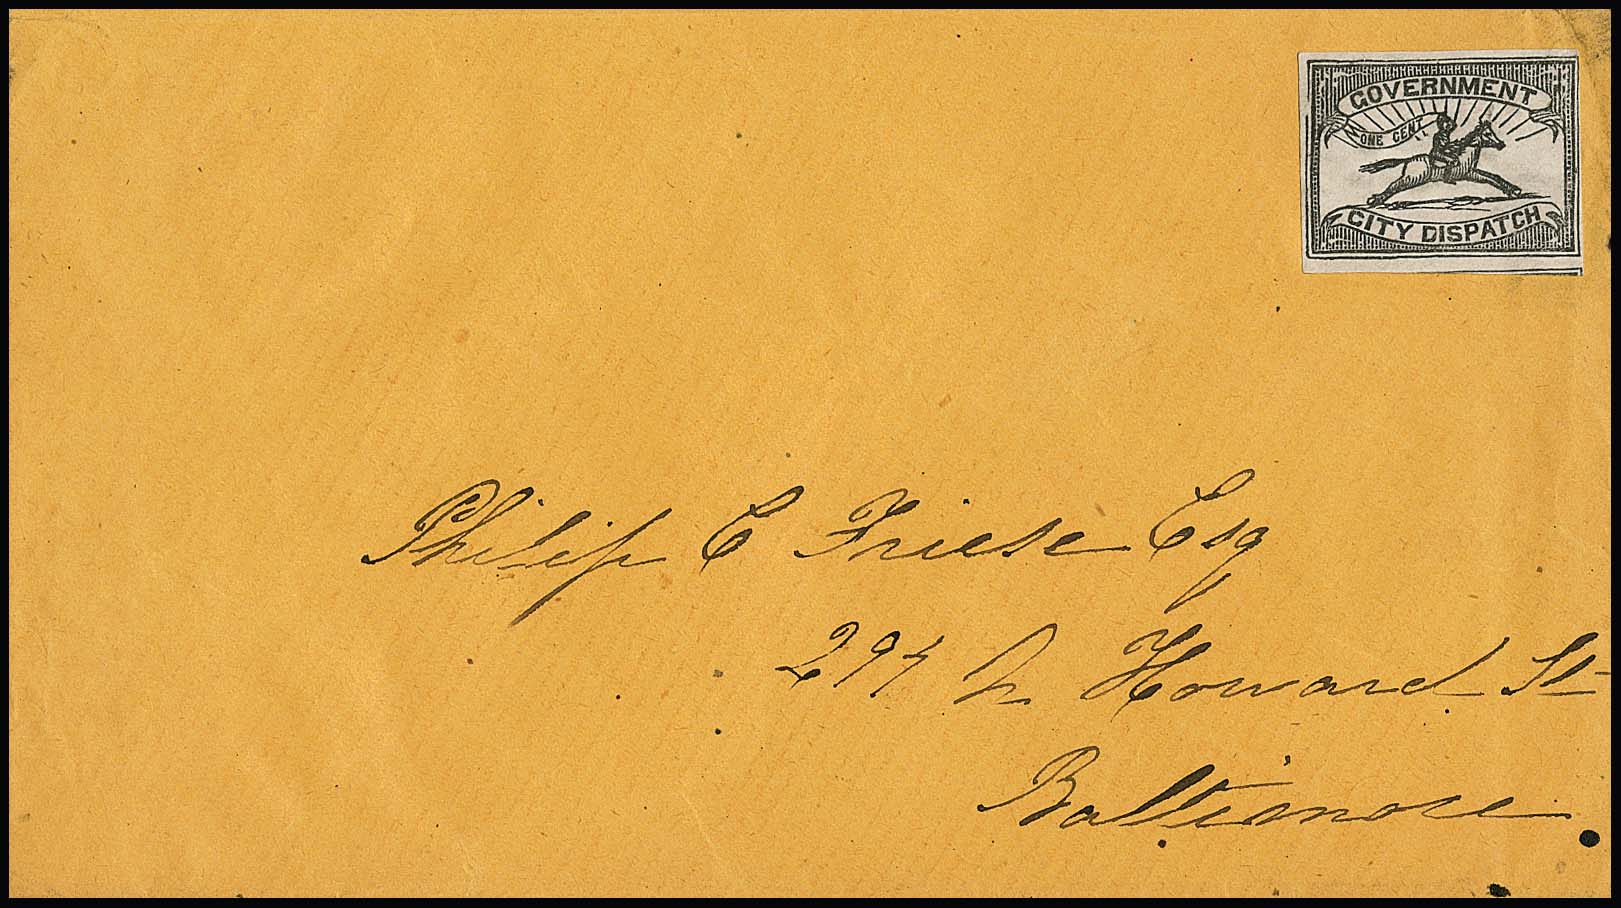 GOVERNMENT
ONE CENT
CITY DISPATCH
Philip C Friese Esq
297 N Howard St
Baltimore